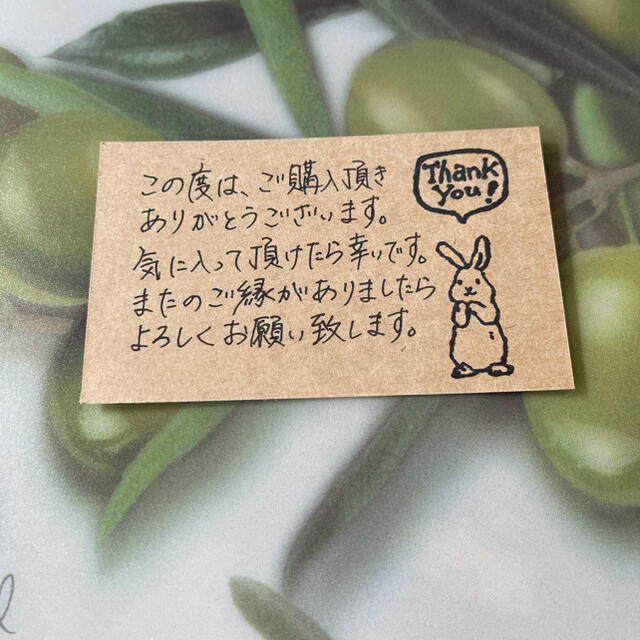 この度は、ご購入頂き
ありがとうございます。
気に入って頂けたら幸いです。
またのご縁がありましたら
よろしくお願い致します。
Thank
you!